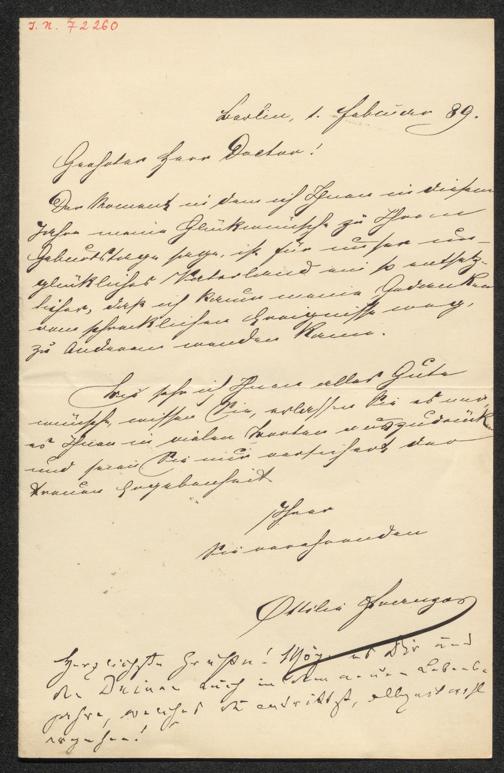 I. N. 72260
Berlin, 1. Februar 89.
Geehrter Herr Doctor!
Der Moment in dem ich Ihnen in diesem
Jahre meine Glückwünsche zu Ihrem
Geburtstage sage, ist für unser un-
glückliches Vaterland ein so entsetz-
licher, daß ich kaum meine Gedanken
vom schrecklichen Ereigniß weg,
zu Anderem wenden kann.
Wie sehr ich Ihnen alles Gute
wünsche, wissen Sie, erlassen Sie es mir
es Ihnen in vielen Worten auszudrücken
und seien Sie nur versichert der
treuen Ergebenheit
Ihrer
Sie verehrenden
Ottilie
Herzlichste Grüße! Möge es Dir und
den Deinen auch in dem neuen Lebens-
jahre, welches Du antrittst, allzeit wohl
ergehen!